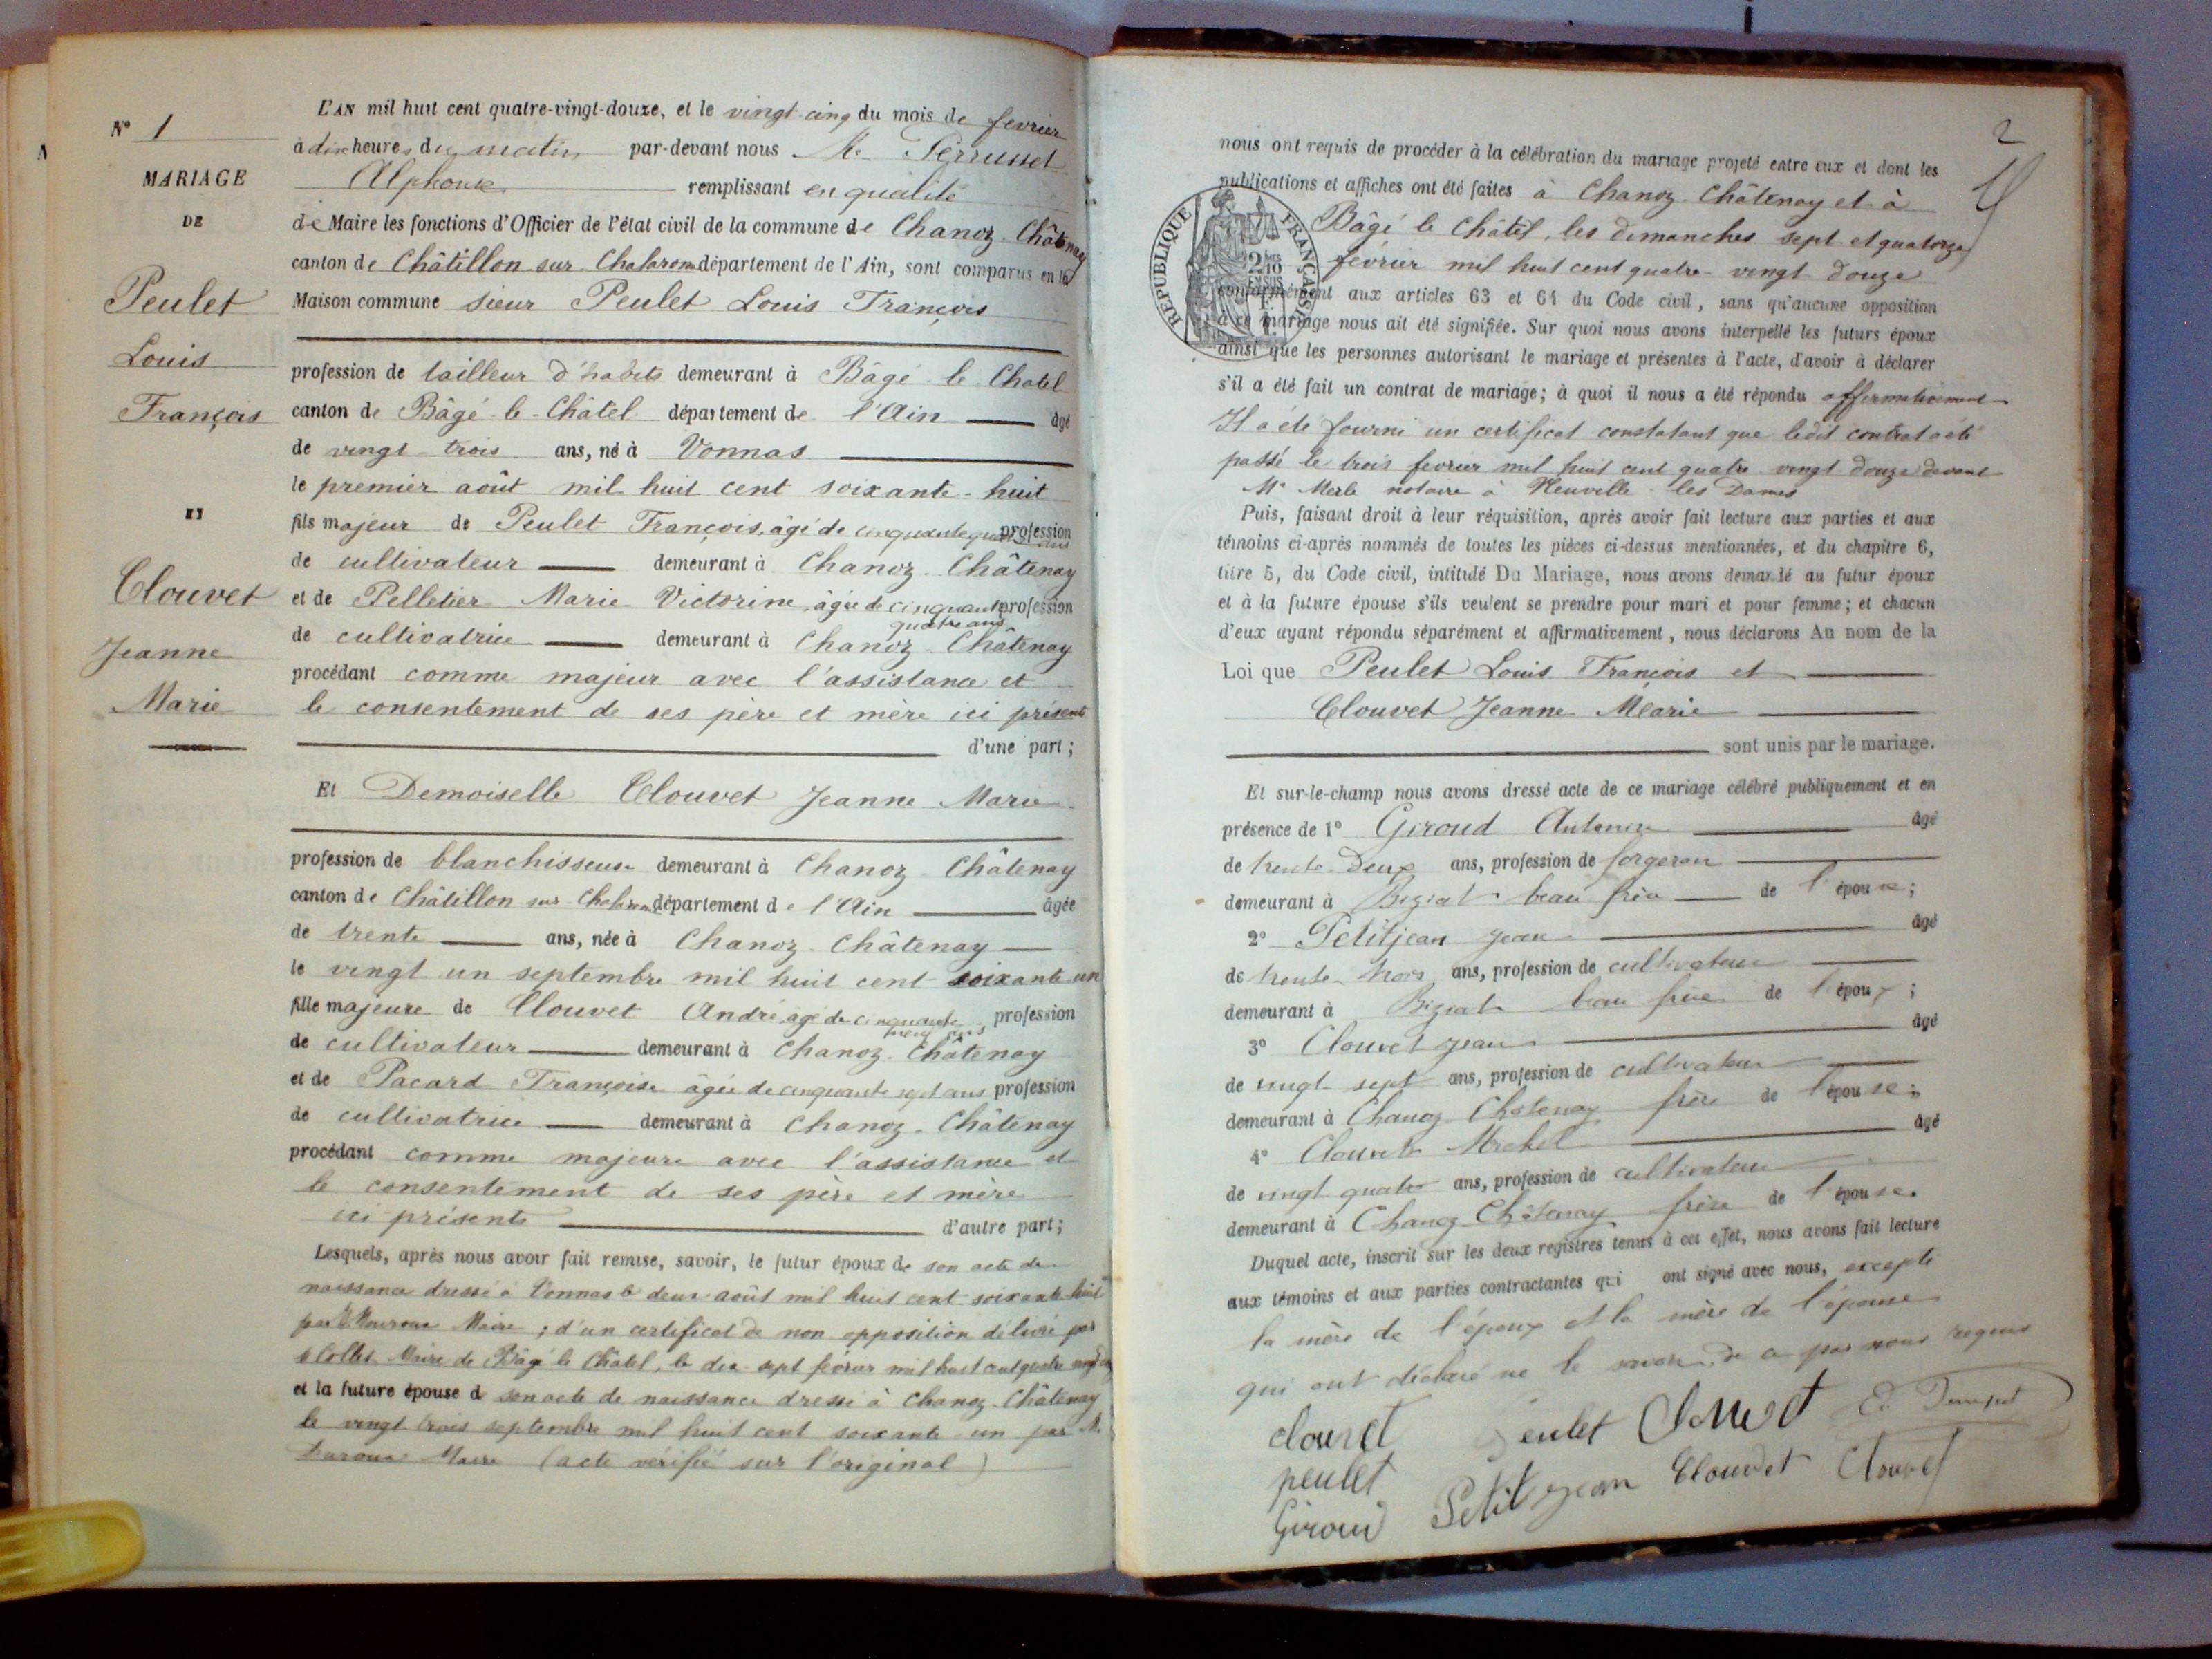 N° 1
MARIAGE
DE
Peulet
Louis
François
ET
Clouvet
Jeanne
Marie
L'AN mil huit cent quatre-vingt-douze, et le vingt-cinq du mois de fevrier
à dix heures du matin par-devant nous M. Perrusset
Alphonse remplissant en qualité
de Maire les fonctions d'Officier de l'état civil de la commune de Chanoz-Châtenay
canton de Châtillon sur Chalaronne département de l'Ain, sont comparus en la
Maison commune sieur Peulet Louis François
profession de tailleur d'habits demeurant à Bâgé-le-Chatel
canton de Bâgé-le-Châtel département de l'Ain âgé
de vingt-trois ans, né à Vonnas
le premier août mil huit cent soixante-huit
fils majeur de Peulet François, âgé de cinquante quatre ans profession
de cultivateur demeurant à Chanoz-Châtenay
et de Pelletier Marie Victorine, âgée de cinquante quatre ans profession
de cultivatrice demeurant à Chanoz-Châtenay
procédant comme majeur avec l'assistance et
le consentement de ses père et mère ici présents
d'une part;
Et Demoiselle Clouvet Jeanne Marie
profession de blanchisseuse demeurant à Chanoz-Châtenay
canton de Châtillon sur Chalaronne département de l'Ain âgée
de trente ans, née à Chanoz-Châtenay
le vingt un septembre mil huit cent soixante un
fille majeure de Clouvet André, âgé de cinquante neuf ans, profession
de cultivateur demeurant à Chanoz-Châtenay
et de Pacard Françoise âgée de cinquante sept ans profession
de cultivatrice demeurant à Chanoz-Châtenay
procédant comme majeure avec l'assistance et
le consentement de ses père et mère
ici présents d'autre part;
Lesquels, après nous avoir fait remise, savoir, le futur époux de son acte de
naissance dressé à Vonnas le deux août mil huit cent soixante-huit
par Maire; d'un certificat de non opposition délivré par
Collet Maire de Bâgé le Châtel, le dix-sept février mil huit cent quatre vingt
et la future épouse d son acte de naissance dressé à Chanoz-Châtenay
le vingt trois septembre mil huit cent soixante-un par M.
Maire (acte vérifié sur l'original)
2
nous ont requis de procéder à la célébration du mariage projeté entre eux et dont les
publications et affiches ont été faites à Chanoz-Châtenay et à
Bâgé le Châtel, les dimanches sept et quatorze
février mil huit cent quatre-vingt-douze
REPUBLIQUE FRANÇAISE
2/10 EN SUS
conformément aux articles 63 et 64 du Code civil, sans qu'aucune opposition
à ce mariage nous ait été signifiée. Sur quoi nous avons interpellé les futurs époux
ainsi que les personnes autorisant le mariage et présentes à l'acte, d'avoir à déclarer
s'il a été fait un contrat de mariage; à quoi il nous a été répondu affirmativement
Il a été fourni un certificat constatant que ledit contrat a été
passé le trois fevrier mil huit cent quatre-vingt-douze devant
Me Merle notaire à Neuville-les-Dames
Puis, faisant droit à leur réquisition, après avoir fait lecture aux parties et aux
témoins ci-après nommés de toutes les pièces ci-dessus mentionnées, et du chapitre 6,
titre 5, du Code civil, intitulé Du Mariage, nous avons demandé au futur époux
et à la future épouse s'ils veulent se prendre pour mari et pour femme; et chacun
d'eux ayant répondu séparément et affirmativement, nous déclarons Au nom de la
Loi que Peulet Louis François et
Clouvet Jeanne Marie
sont unis par le mariage.
Et sur-le-champ nous avons dressé acte de ce mariage célébré publiquement et en
présence de 1° Giroud Antonin âgé
de trente-deux ans, profession de forgeron
demeurant à Biziat beau frère de l'épouse;
2° Petitjean Jean âgé
de trente-trois ans, profession de cultivateur
demeurant à Biziat beau frère de l'époux;
3° Clouvet Jean âgé
de vingt sept ans, profession de cultivateur
demeurant à Chanoz-Châtenay frère de l'épouse;
4° Clouvet Michel âgé
de vingt quatre ans, profession de cultivateur
demeurant à Chanoz-Châtenay frère de l'épouse.
Duquel acte, inscrit sur les deux registres tenus à cet effet, nous avons fait lecture
aux témoins et aux parties contractantes qui ont signé avec nous, excepté
la mère de l'époux et la mère de l'épouse
qui ont déclaré ne le savoir, de ce par nous requis
clouvet Peulet Clouvet
peulet Petitjean Clouvet Clouvet
Giroud